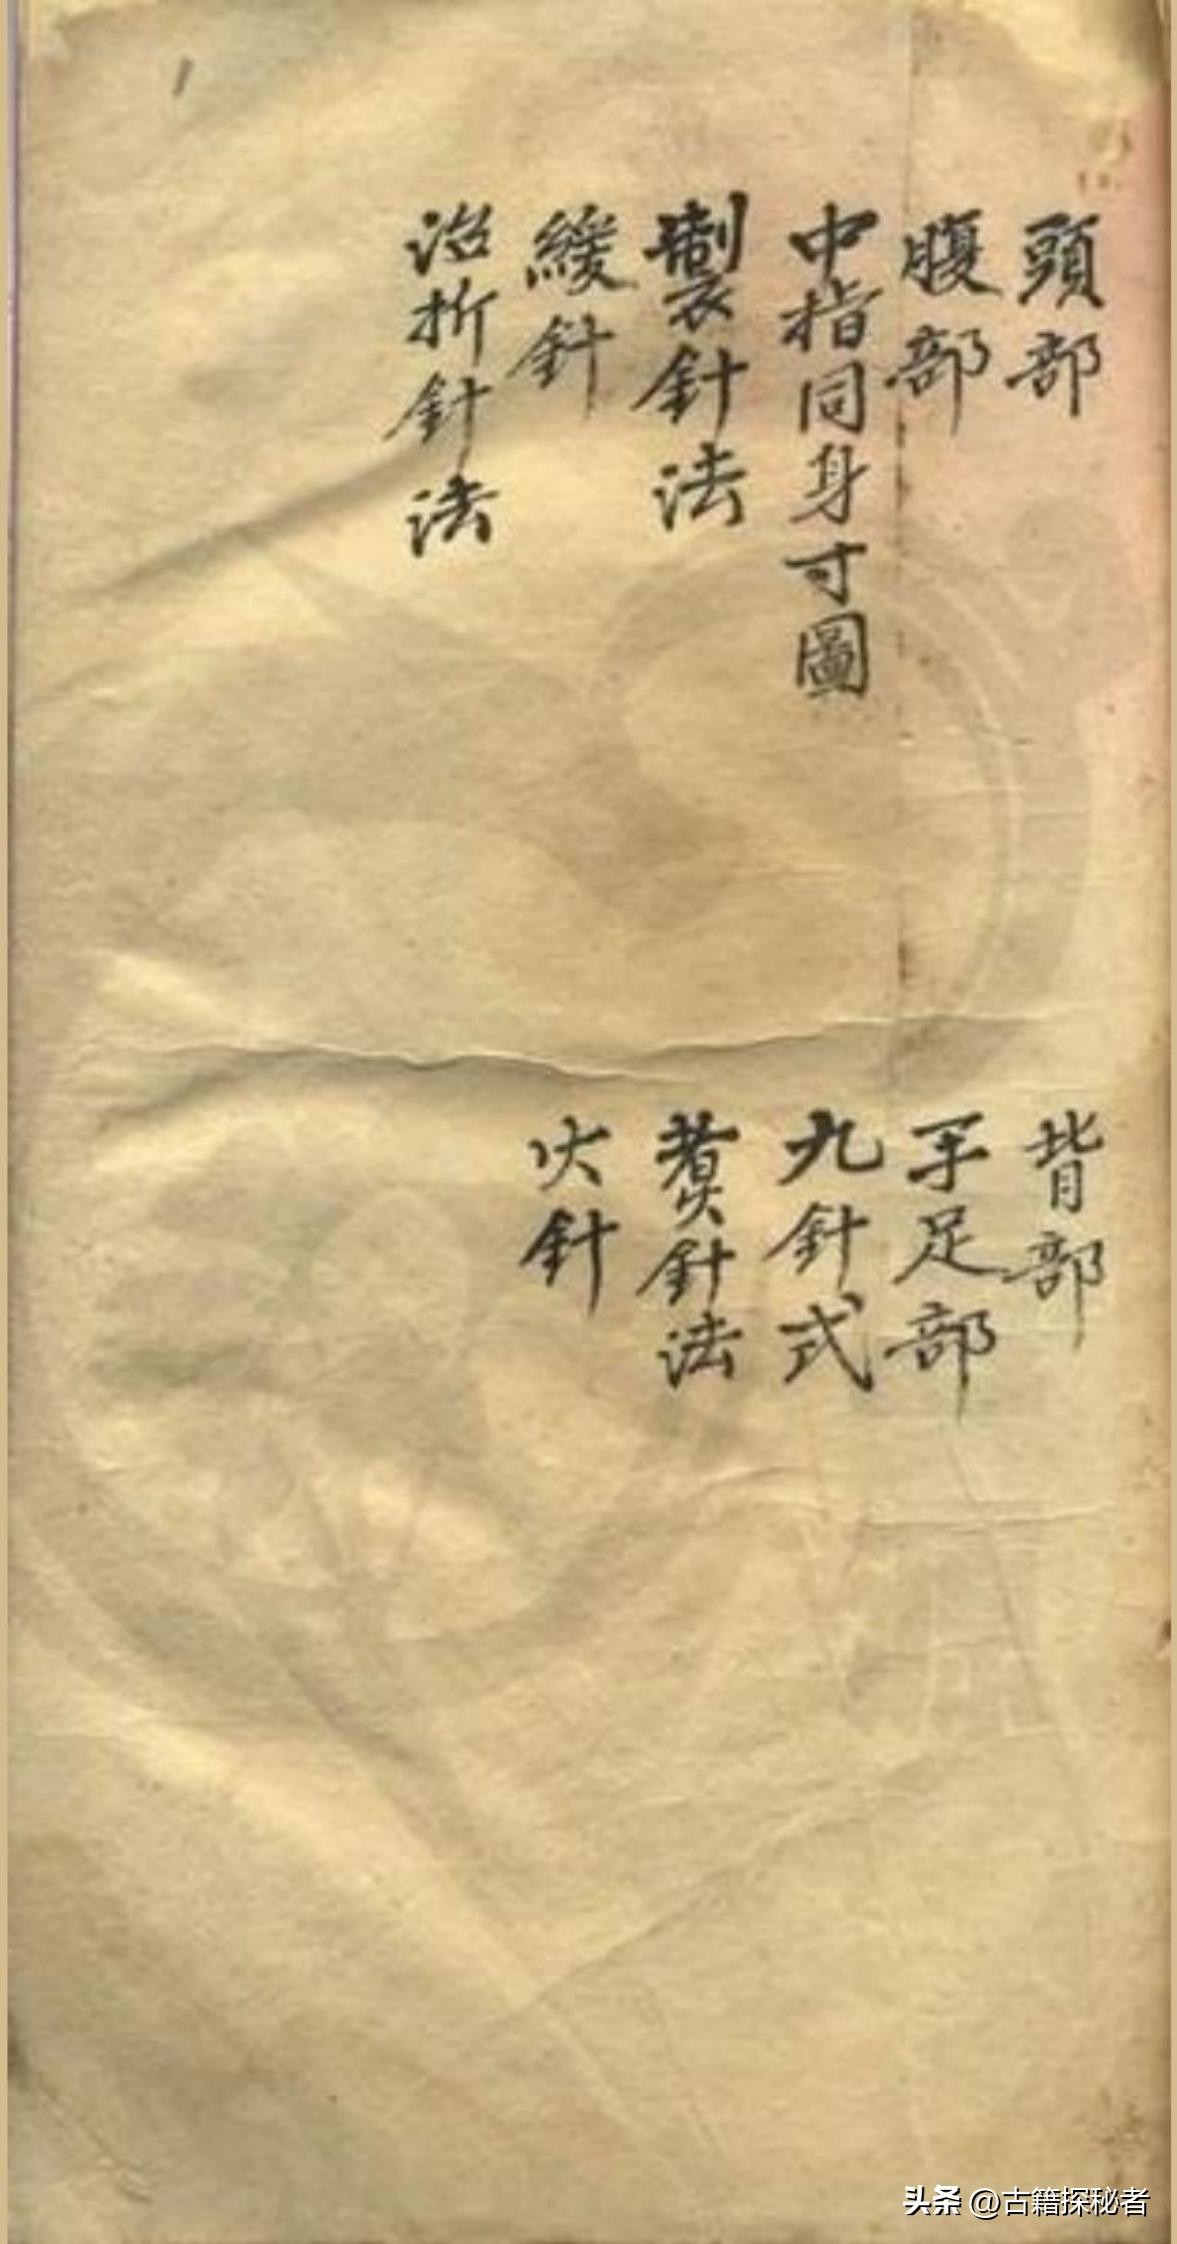 頭部
背部
腹部
手足部
中指同身寸圖
九針式
製針法
煑針法
緩針
火針
治折針法
头条 @古籍探秘者